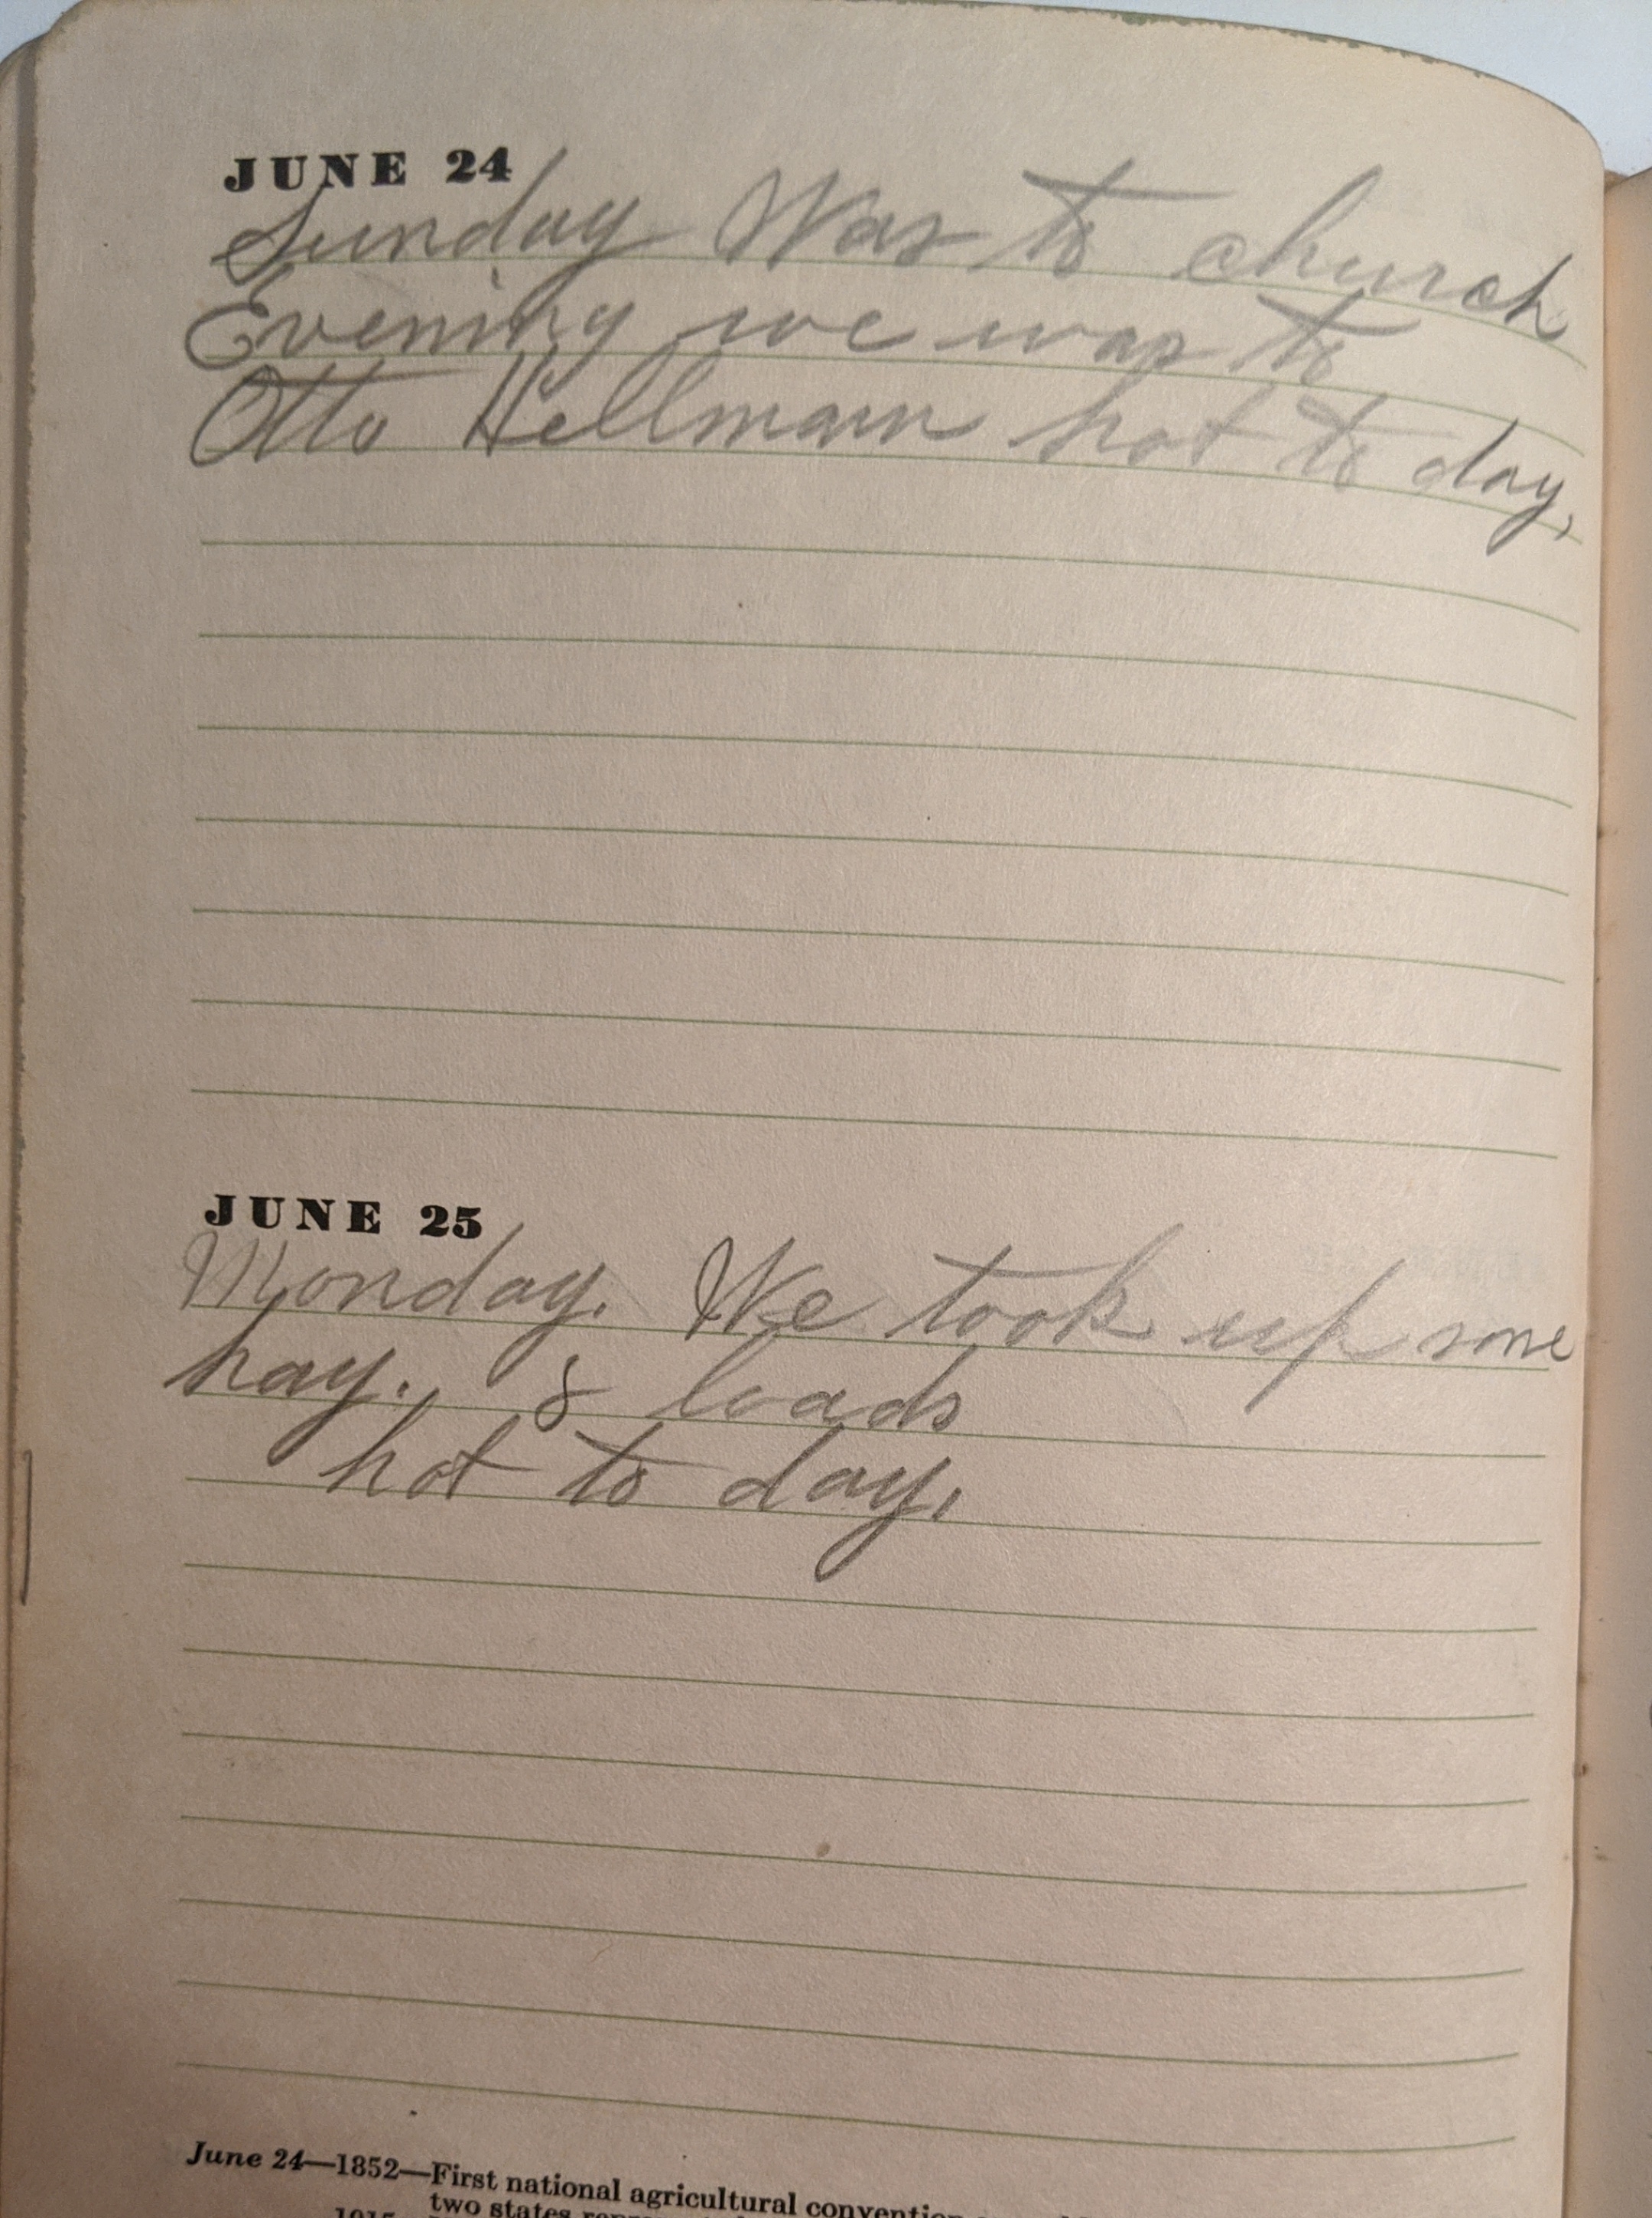 JUNE 24
Sunday Was to church
Evening we was to
Otto Hellmann hot to day,
JUNE 25
Monday. We took up some
hay. 8 loads
hot to day,
June 24—1852—First national agricultural convention
two states